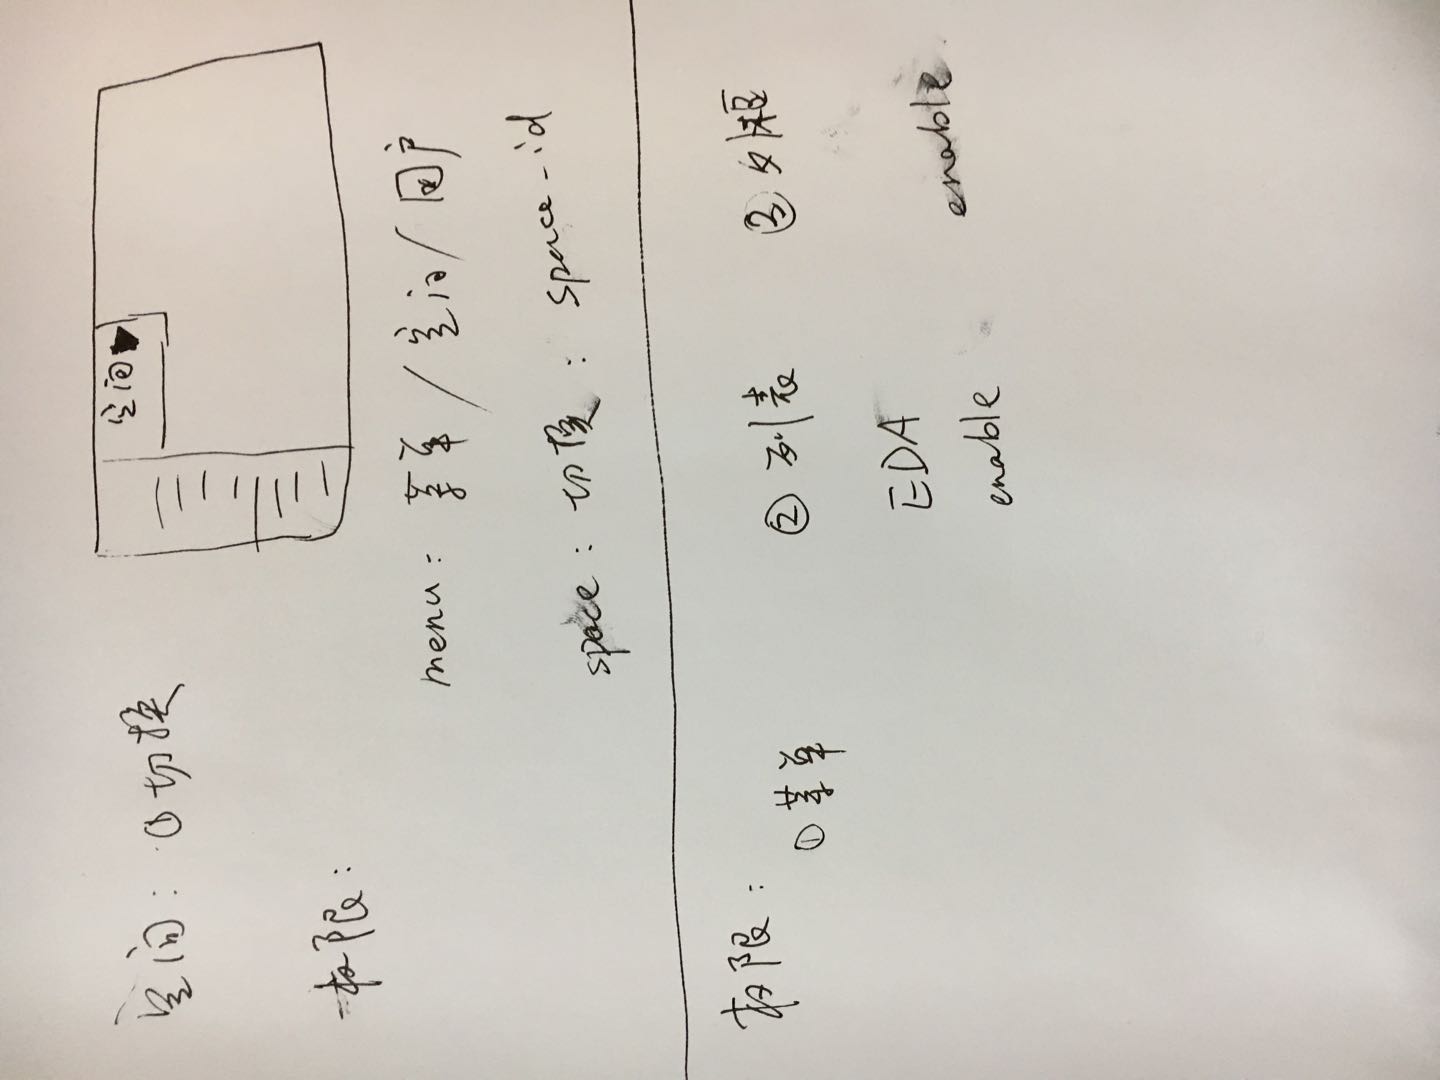 空间: ①切换
空间
权限:
menu: 菜单/空间/用户
space: 切换: space_id
权限:
①菜单
②列表
③外框
EDA
enable
enable